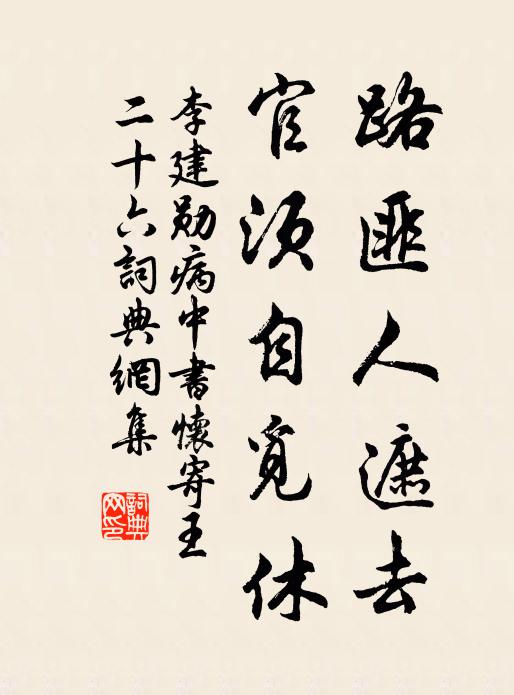 路匪人遮去
官須自覓休
李建勛病中書懷寄王
二十六詞典網集
詞典網印